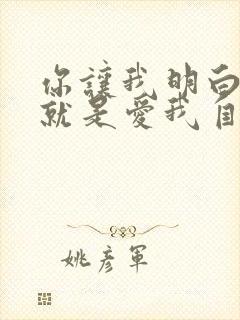 你讓我明白
就是愛我自
姚彥軍